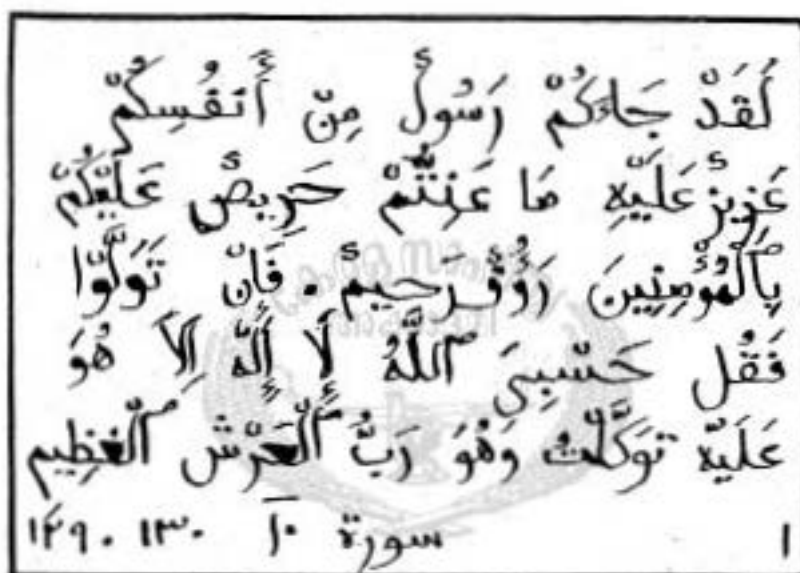 لَقَدْ جَاءَكُمْ رَسُولٌ مِنْ أَنْفُسِكُمْ
عَزِيزٌ عَلَيْهِ مَا عَنِتُّمْ حَرِيصٌ عَلَيْكُمْ
بِٱلْمُؤْمِنِينَ رَؤُفٌ رَحِيمٌ . فَإِنْ تَوَلَّوْا
فَقُل حَسْبِيَ ٱللَّهُ لَا إِلَهَ إِلَّا هُوَ
عَلَيْهِ تَوَكَّلْتُ وَهُوَ رَبُّ ٱلْعَرْشِ ٱلْعَظِيمِ
١ سورة ١٠ ١٣٠ . ١٢٩